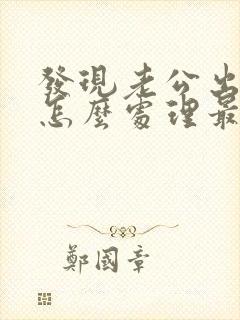 發現老公出
怎麼處理最
鄭國章